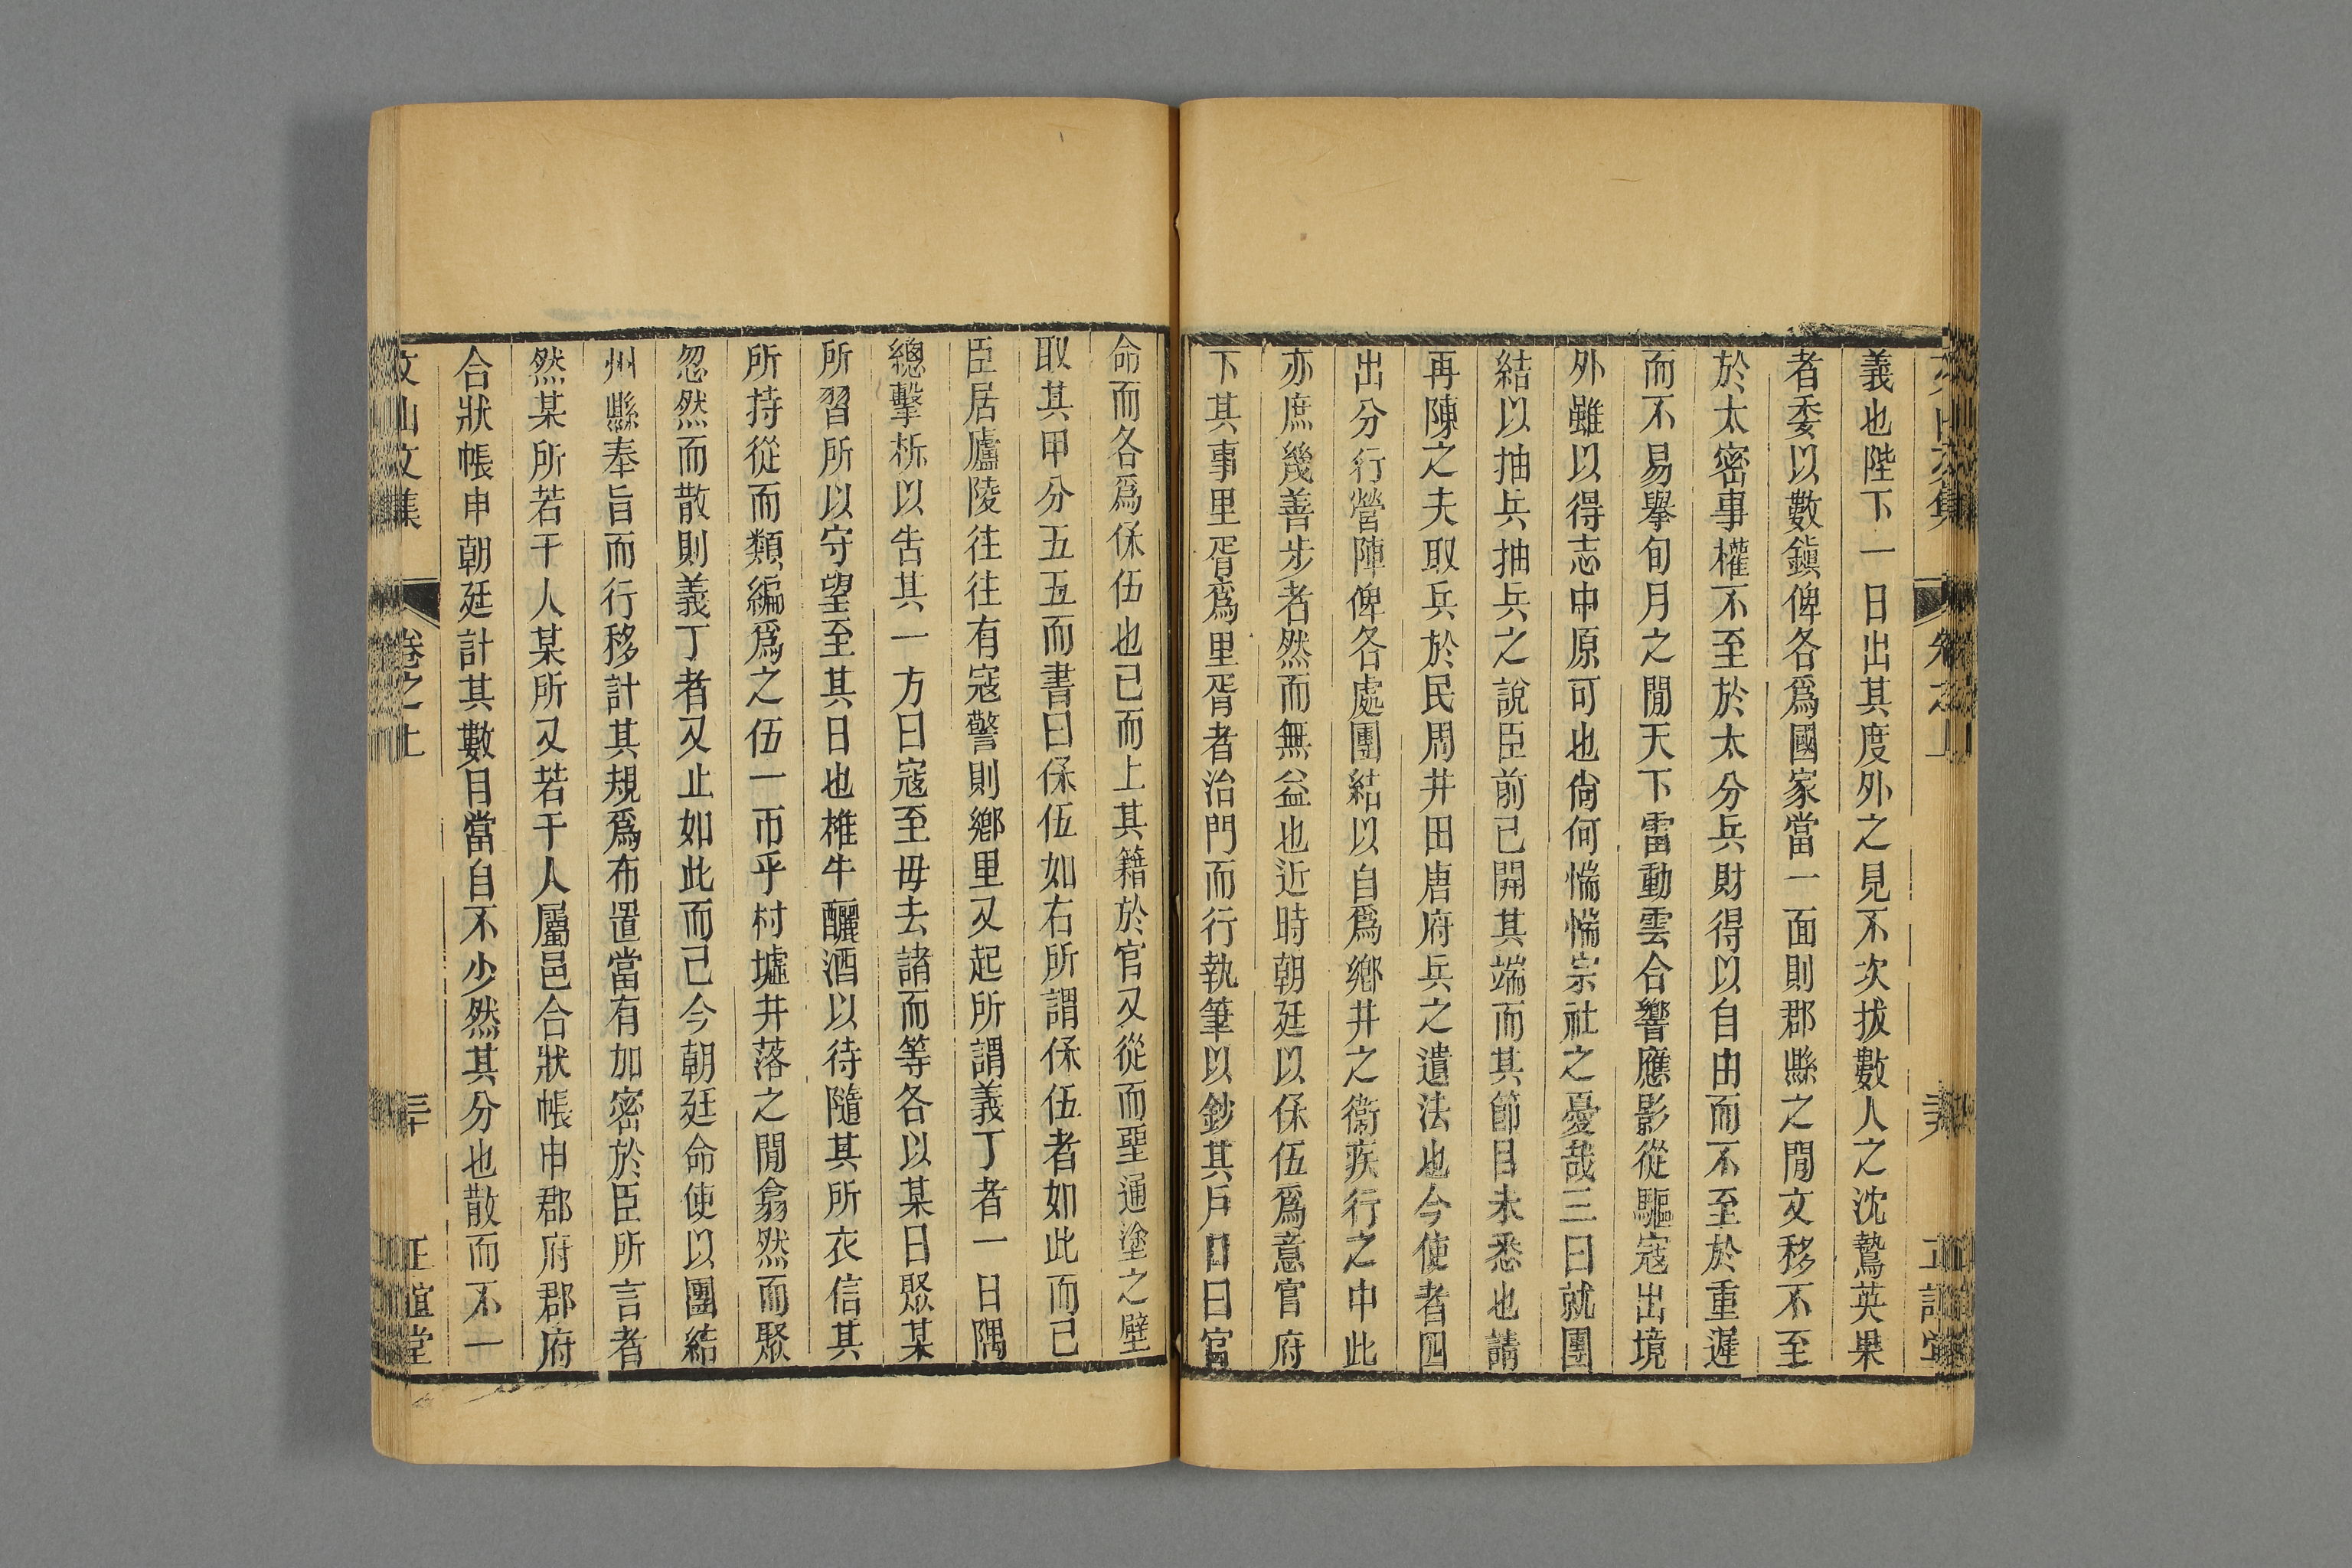 義也陛下一日出其度外之見不次拔數人之沈鷙英果
者委以數鎮俾各爲國家當一面則郡縣之閒文移不至
於太密事權不至於太分兵財得以自由而不至於重遲
而不易舉旬月之閒天下雷動雲合響應影從驅寇出境
外雖以得志中原可也尙何惴惴宗社之憂哉三曰就團
結以抽兵抽兵之說臣前已開其端而其節目未悉也請
再陳之夫取兵於民周井田唐府兵之遺法也今使者四
出分行營陣俾各處團結以自爲鄉井之衞疾行之中此
亦庶幾善步者然而無益也近時朝廷以保伍爲意官府
下其事里胥爲里胥者治門而行執筆以鈔其戶口曰官
命而各爲保伍也已而上其籍於官又從而聖通塗之壁
取其甲分五五而書曰保伍如右所謂保伍者如此而已
臣居廬陵往往有寇警則鄉里又起所謂義丁者一日隅
總擊柝以告其一方曰寇至毋去諸而等各以某日聚某
所習所以守望至其日也椎牛釃酒以待隨其所衣信其
所持從而類編爲之伍一帀乎村墟井落之閒翕然而聚
忽然而散則義丁者又止如此而已今朝廷命使以團結
州縣奉旨而行移計其規爲布置當有加密於臣所言者
然某所若干人某所又若干人屬邑合狀帳申郡府郡府
合狀帳申朝廷計其數目當自不少然其分也散而不一
文山文集 卷之上 三十 正誼堂